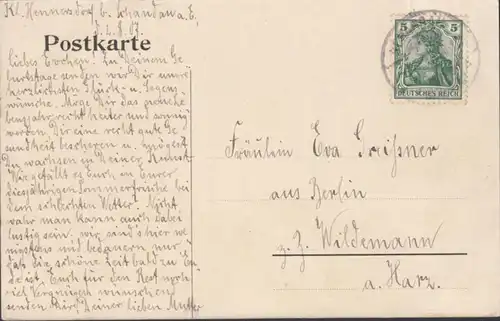 Kl. Hennersdorf b. Schandau a. E.,
d. 4. 8. 07.
Postkarte
Liebes Evchen! Zu Deinem Ge-
burtstage senden wir Dir unsre
herzlichsten Glück- u. Segens-
wünsche. Möge Dir das
Lebensjahr recht heiter und sonnig
werden Dir eine recht gute Ge-
sundheit bescheren u. mögest
Du wachsen zu Deiner
Wie gefällt es Euch in Eurer
diesjährigen Sommerfrische bei
dem schlechten Wetter? Nicht
wahr man kann auch dabei
lustig sein. wir sind's hier we-
nigstens und bedauern nur,
daß die schöne Zeit bald zu En-
de ist. Euch für den Rest noch
viel Vergnügen wünschen
senden Deiner lieben Mutter
5 5
DEUTSCHES REICH
Fräulein Eva
aus Berlin
z. Z. Wildemann
a. Harz.